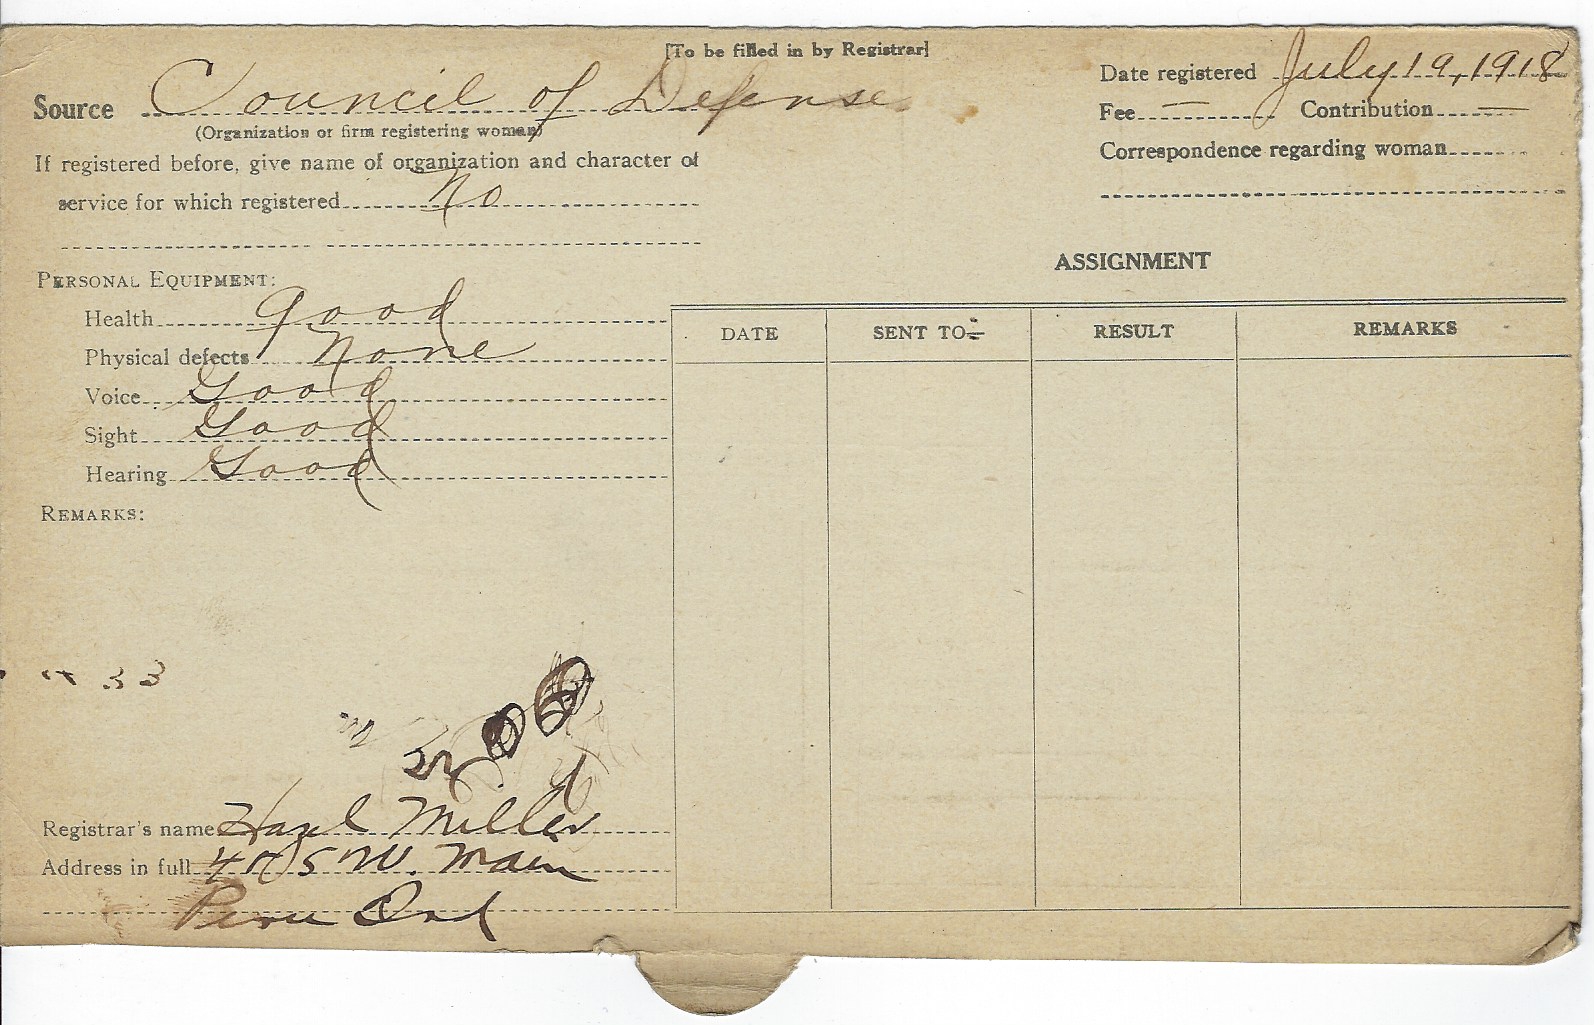 [To be filled in by Registrar]
Source Council of Defense
(Organization or firm registering woman)
If registered before, give name of organization and character of
service for which registered No
Date registered July 19, 1918
Fee — Contribution —
Correspondence regarding woman
PERSONAL EQUIPMENT:
Health good
Physical defects none
Voice Good
Sight Good
Hearing Good
REMARKS:
33
Registrar's name Hazel Miller
Address in full W. Main
Peru Ind
ASSIGNMENT
DATE SENT TO— RESULT REMARKS